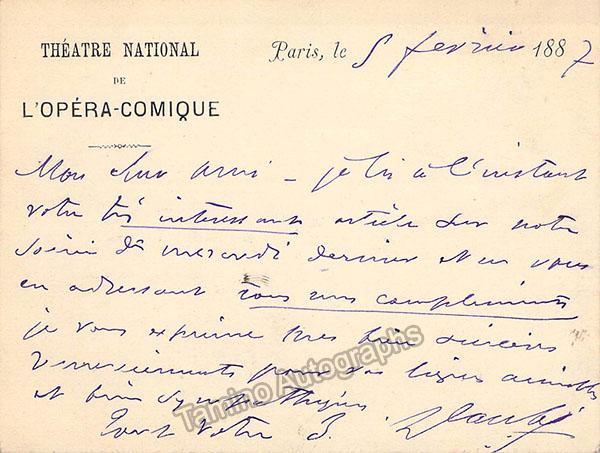 THÉATRE NATIONAL
DE
L'OPÉRA-COMIQUE
Paris, le 5 février 1887
Mon cher ami – je lis à l'instant
votre très intéressant article sur notre
soirée de mercredi dernier et en vous
en adressant tous mes compliments
je vous exprime mes bien sincères
remerciements pour vos lignes aimables
et bien sympathiques
Tout votre
Tamino Autographs